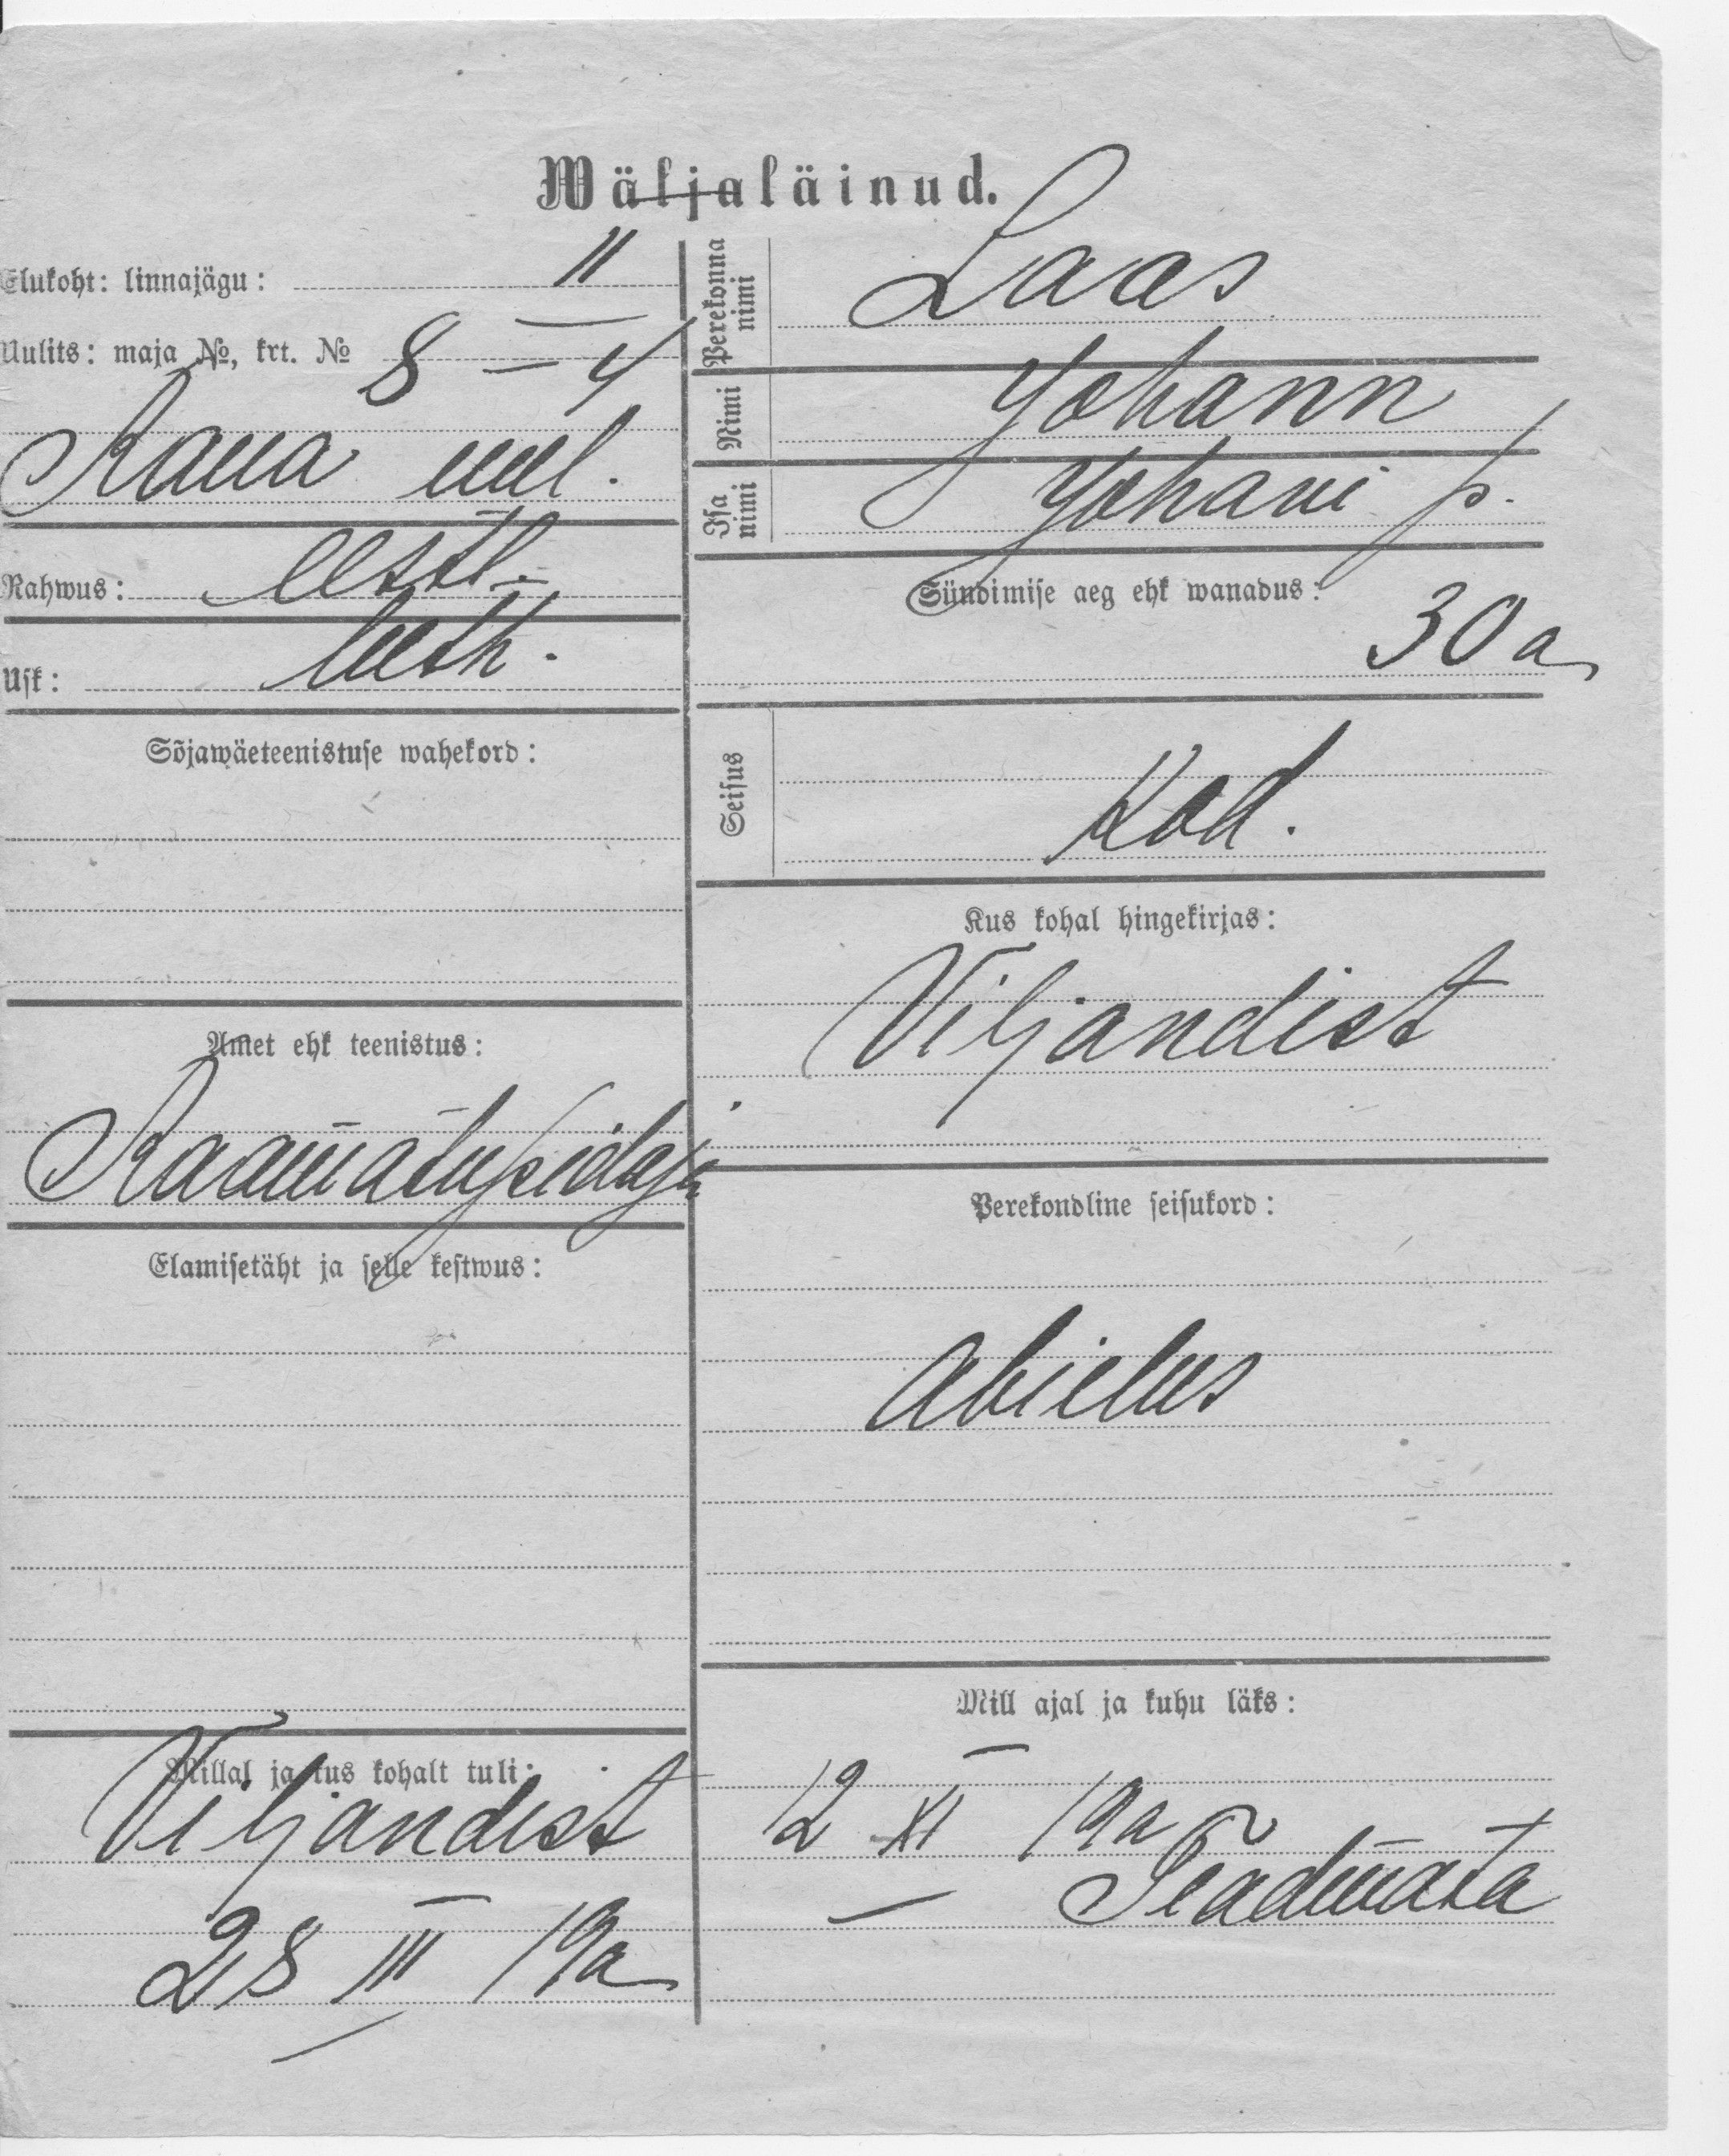 Wäljaläinud.
Elukoht: linnajägu: II
Uulits: maja №, krt. № 8 — 4
Raua uul.
Rahwus: eestl.
Usk: luth.
Sõjawäeteenistuse wahekord:
Amet ehk teenistus:
Raamatupidaja
Elamisetäht ja selle kestwus:
Millal ja kus kohalt tuli:
Viljandist
28 III 19a
Perekonna nimi Laas
Nimi Johann
Isa nimi Johani p.
Sündimise aeg ehk wanadus:
30 a
Seisus
Kod.
Kus kohal hingekirjas:
Viljandist
Perekondline seisukord:
Abielus
Mill ajal ja kuhu läks:
12 XI 19a
— Teadmata